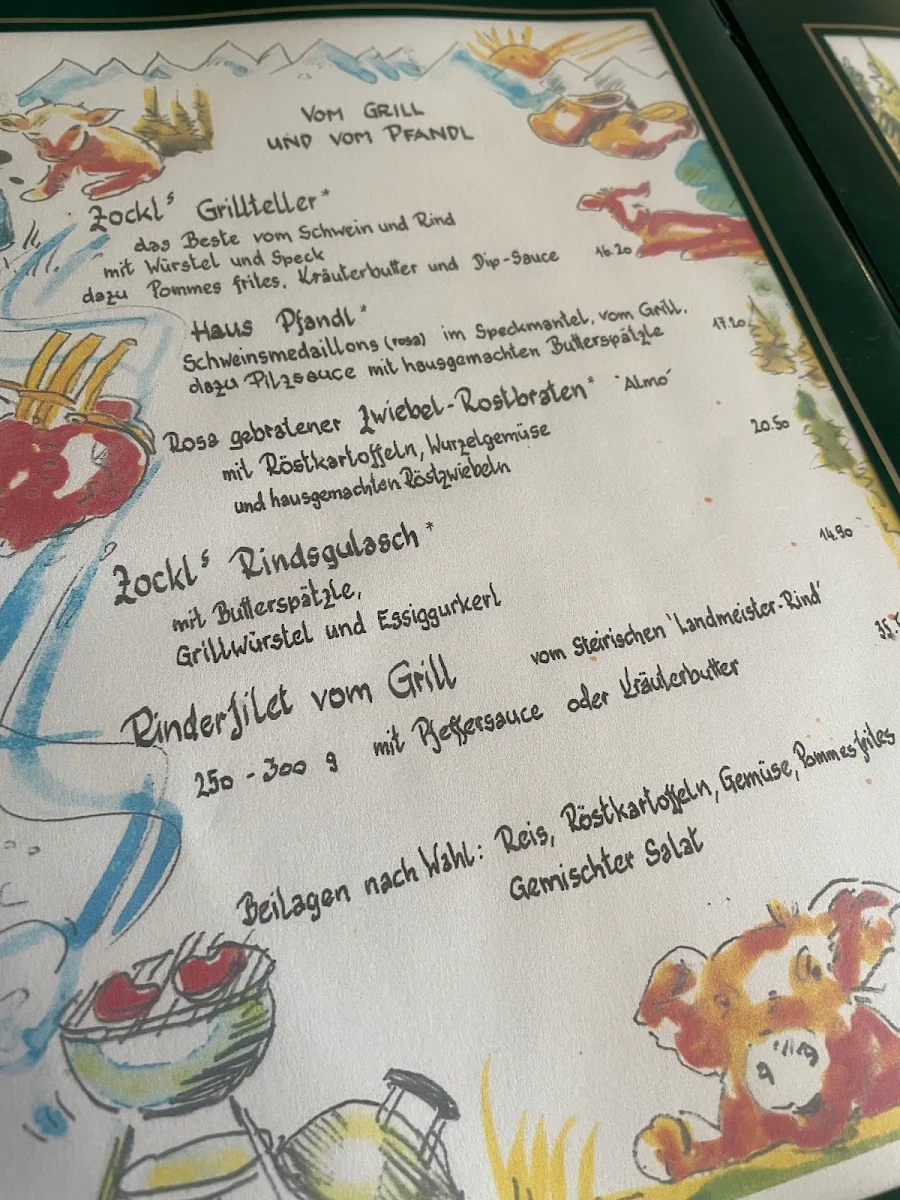 VOM GRILL
UND VOM PFANDL
Zockl's Grillteller*
das Beste vom Schwein und Rind
mit Würstel und Speck
dazu Pommes frites, Kräuterbutter und Dip-Sauce 16.20
Haus Pfandl*
Schweinsmedaillons (rosa) im Speckmantel, vom Grill,
dazu Pilzsauce mit hausgemachten Butterspätzle 17.20
Rosa gebratener Zwiebel-Rostbraten* "Almo"
mit Röstkartoffeln, Wurzelgemüse 20.50
und hausgemachten Röstzwiebeln
Zockl's Rindsgulasch* 14.90
mit Butterspätzle,
Grillwürstel und Essiggurkerl
Rinderfilet vom Grill vom Steirischen 'Landmeister-Rind'
250 - 300 g mit Pfeffersauce oder Kräuterbutter
Beilagen nach Wahl: Reis, Röstkartoffeln, Gemüse, Pommes frites
Gemischter Salat